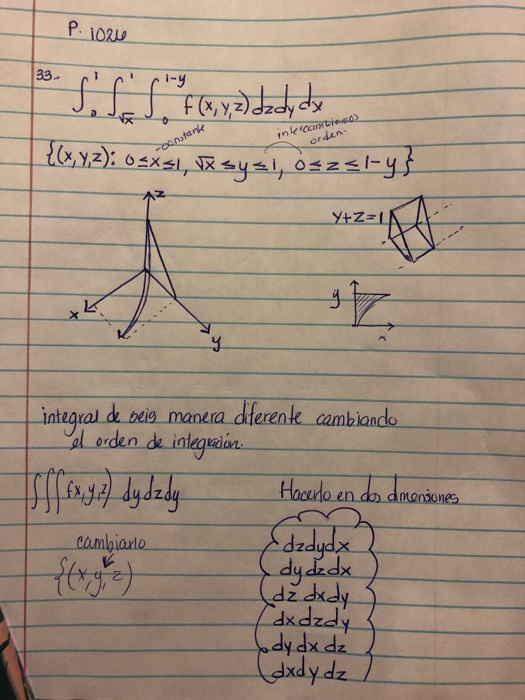 P. 1026
33.- ∫₀¹ ∫_√x^1 ∫₀^1-y f(x,y,z) dzdydx
-constante intercambiamos orden.
{(x,y,z): 0≤x≤1, √x≤y≤1, 0≤z≤1-y}
z
y+z=1
x
y
y
x
integral de seis manera diferente cambiando
el orden de integración.
∫∫∫ f(x,y,z) dydzdy
Hacerlo en dos dmensiones
cambiarlo
{(x,y,z)
dzdydx
dydzdx
dz dxdy
dxdzdy
dy dx dz
dxdy dz